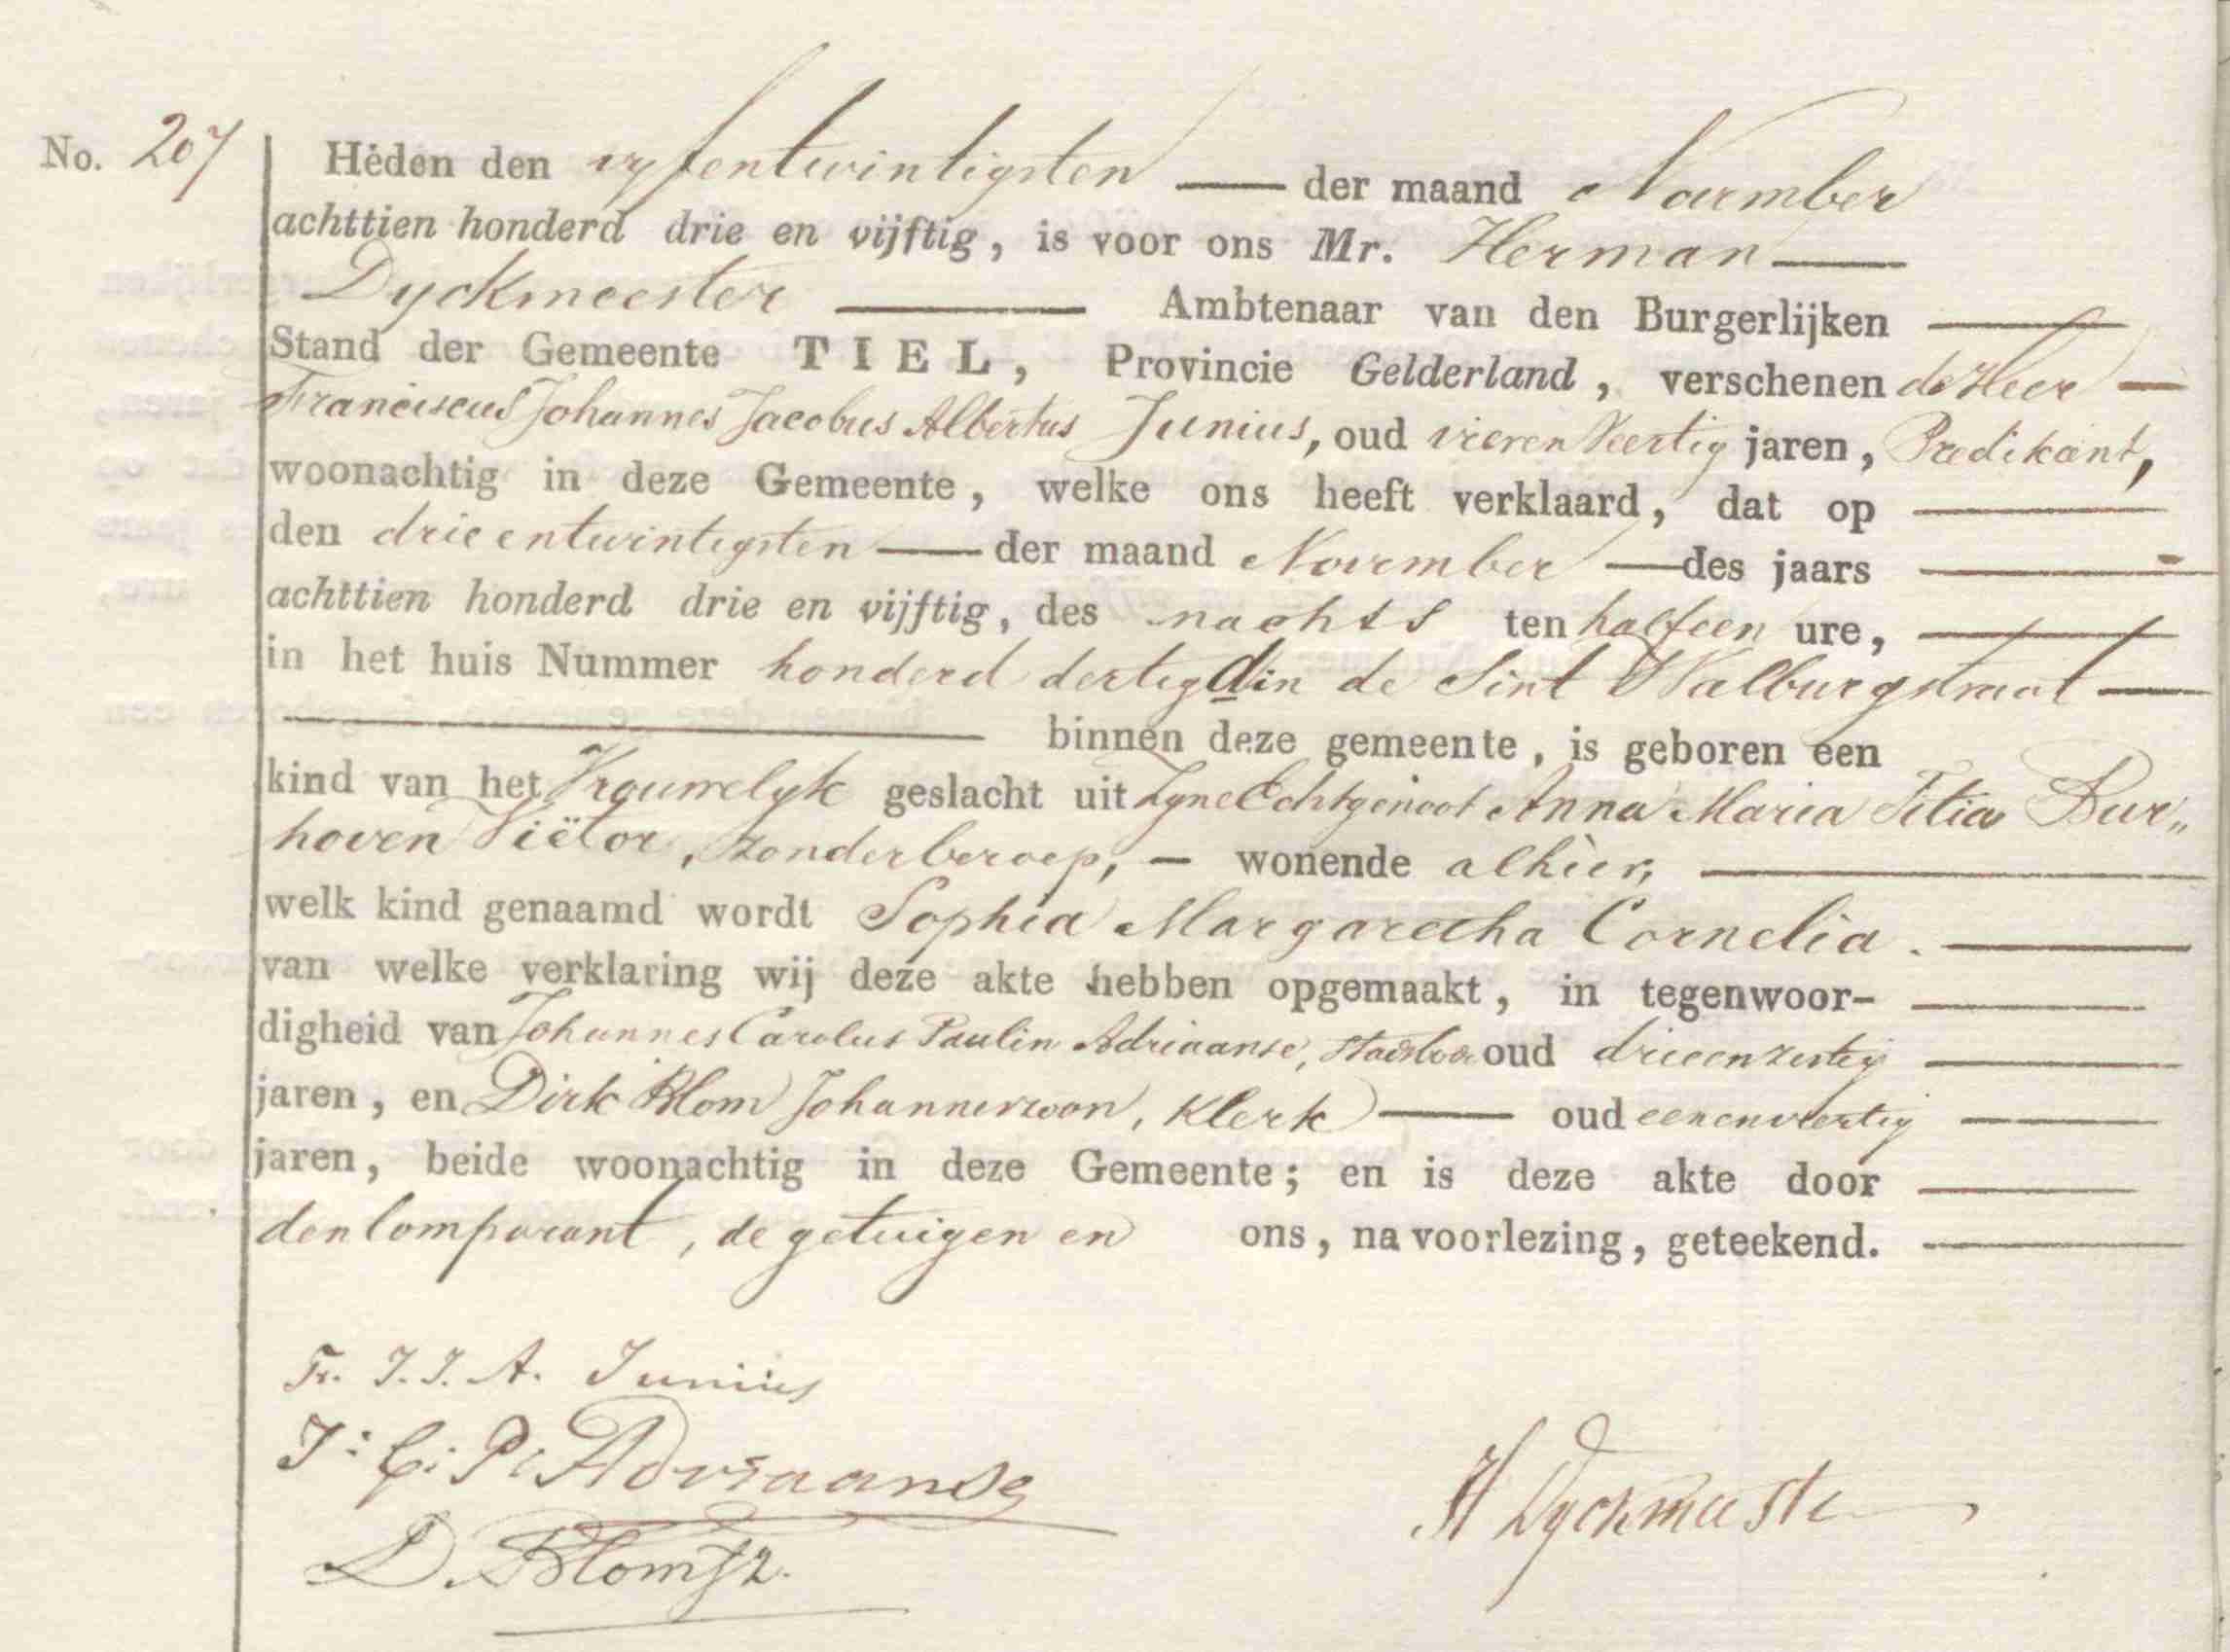 No. 207 Heden den vyfentwintigsten der maand November
achttien honderd drie en vijftig, is voor ons Mr. Herman
Dyckmeester Ambtenaar van den Burgerlijken
Stand der Gemeente TIEL, Provincie Gelderland, verschenen de Heer
Franciscus Johannes Jacobus Albertus Junius, oud vierenveertig jaren, Predikant,
woonachtig in deze Gemeente, welke ons heeft verklaard, dat op
den drieentwintigsten der maand November des jaars
achttien honderd drie en vijftig, des nachts ten halfeen ure,
in het huis Nummer honderd dertig d in de Sint Walburgstraat
binnen deze gemeente, is geboren een
kind van het Vrouwelyk geslacht uit Zyne Echtgenoot Anna Maria Titia Bur„
hoven Viëtor, zonder beroep, – wonende alhier,
welk kind genaamd wordt Sophia Margaretha Cornelia.
van welke verklaring wij deze akte hebben opgemaakt, in tegenwoor-
digheid van Johannes Carolus Paulin Adriaanse, oud drieenzestig
jaren, en Dirk Blom Johanneszoon, Klerk oud eenenveertig
jaren, beide woonachtig in deze Gemeente; en is deze akte door
den Comparant, de getuigen en ons, na voorlezing, geteekend.
Fr. J. J. A. Junius
J: C: P: Adriaanse
H Dyckmeester
D. Blom Jz.